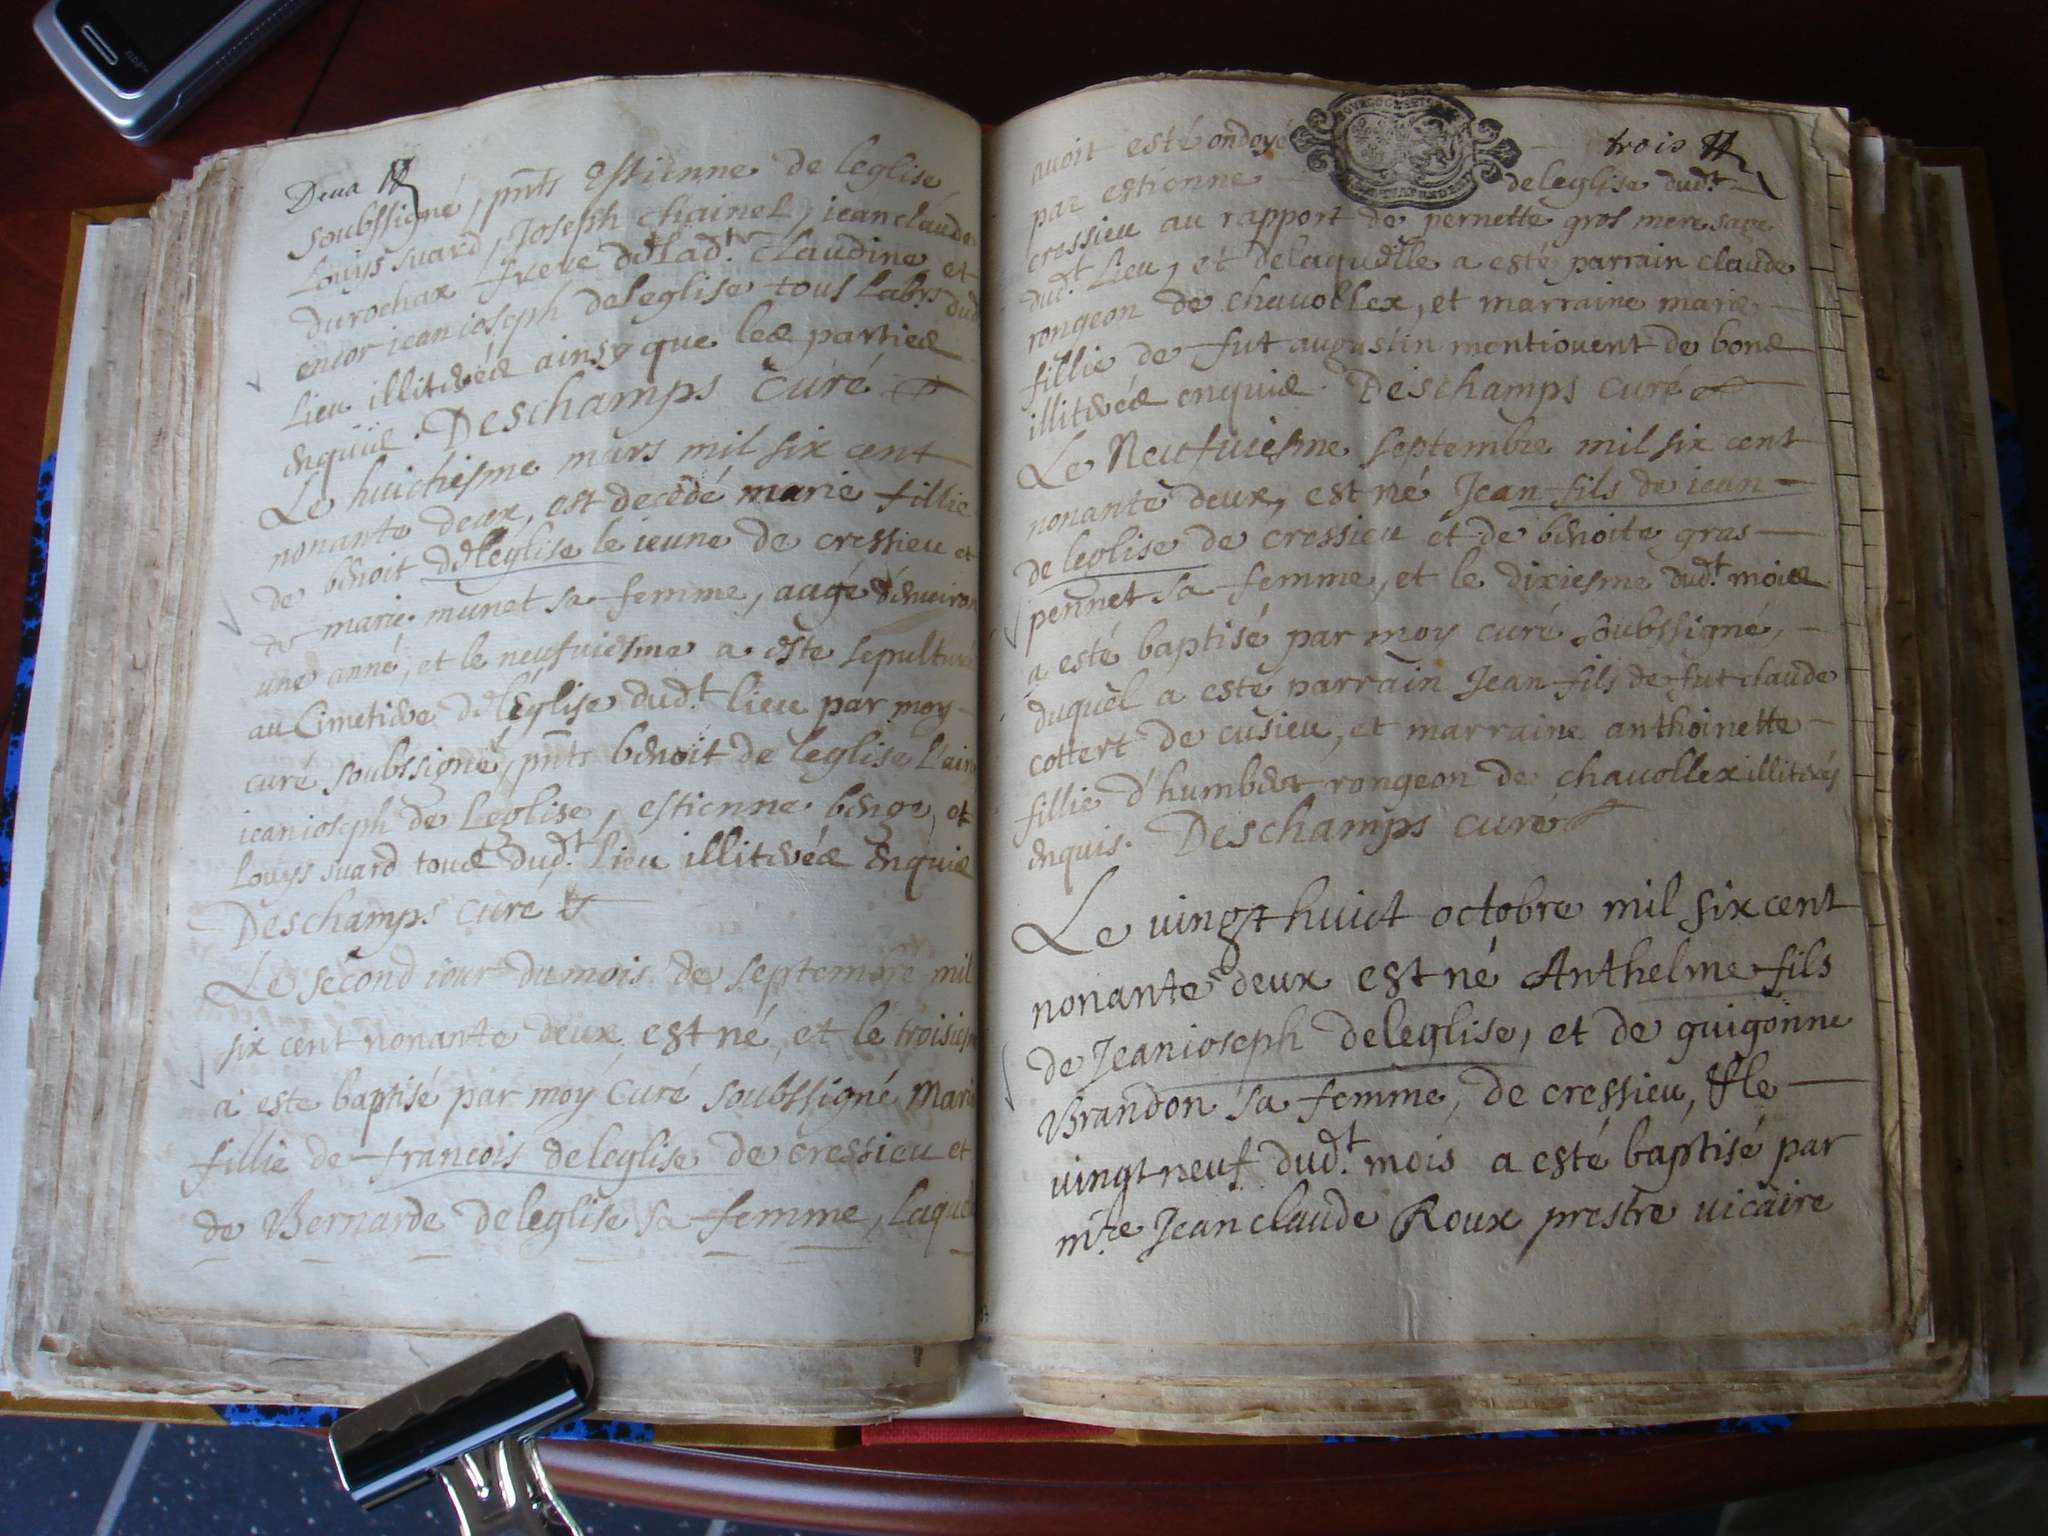 Deux
soubssigné, pnts estienne de leglise
Louys suard, Joseph chainel, jeanclaude
durochax frere de lad.t claudine et
encor jeanioseph deleglise tous labrs dud
Lieu illiterés ainsy que les parties
enquis. Deschamps curé
Le huictiesme mars mil six cent
nonante deux, est decedé marie fillie
de benoit de leglise le jeune de cressieu et
de marie munet sa femme, aagé denuiron
une anné, et le neufuiesme a este sepulture
au Cimetiere de l'église dud.t lieu par moy
curé soubssigné, pnts benoit de leglise l'aine
jeanioseph de Leglise, estienne berge, et
Louys suard tous dud.t Lieu illiterés enquis
Deschamps curé
Le second jour du mois de septembre mil
six cent nonante deux est né, et le troisiesme
a este baptisé par moy Curé soubssigné Marie
fillie de francois deleglise de cressieu et
de Bernarde deleglise sa femme, laquel
trois
avoit esté ondoyé
par estienne deleglise dud.t
cressieu au rapport de pernette gros mere sage
dud.t Lieu, et delaquelle a esté parrain claude
rongeon de chauollex, et marraine marie
fillie de fut augustin montiouent de bons
illiterés enquis. Deschamps curé
Le Neufuiesme septembre mil six cent
nonante deux, est né Jean fils de jean
de leglise de cressieu et de benoite gras
pennet sa femme, et le dixiesme dud.t mois
a esté baptisé par moy curé soubssigné,
duquel a esté parrain Jean fils de fut claude
cottert de cusieu, et marraine anthoinette
fillie d'humbert rongeon de chauollex illiterés
enquis. Deschamps curé
Le vingt huict octobre mil six cent
nonante deux est né Anthelme fils
de Jeanioseph deleglise, et de guigonne
Brandon sa femme, de cressieu, & le
vingt neuf dud.t mois a esté baptisé par
m.re Jean claude Roux prestre vicaire